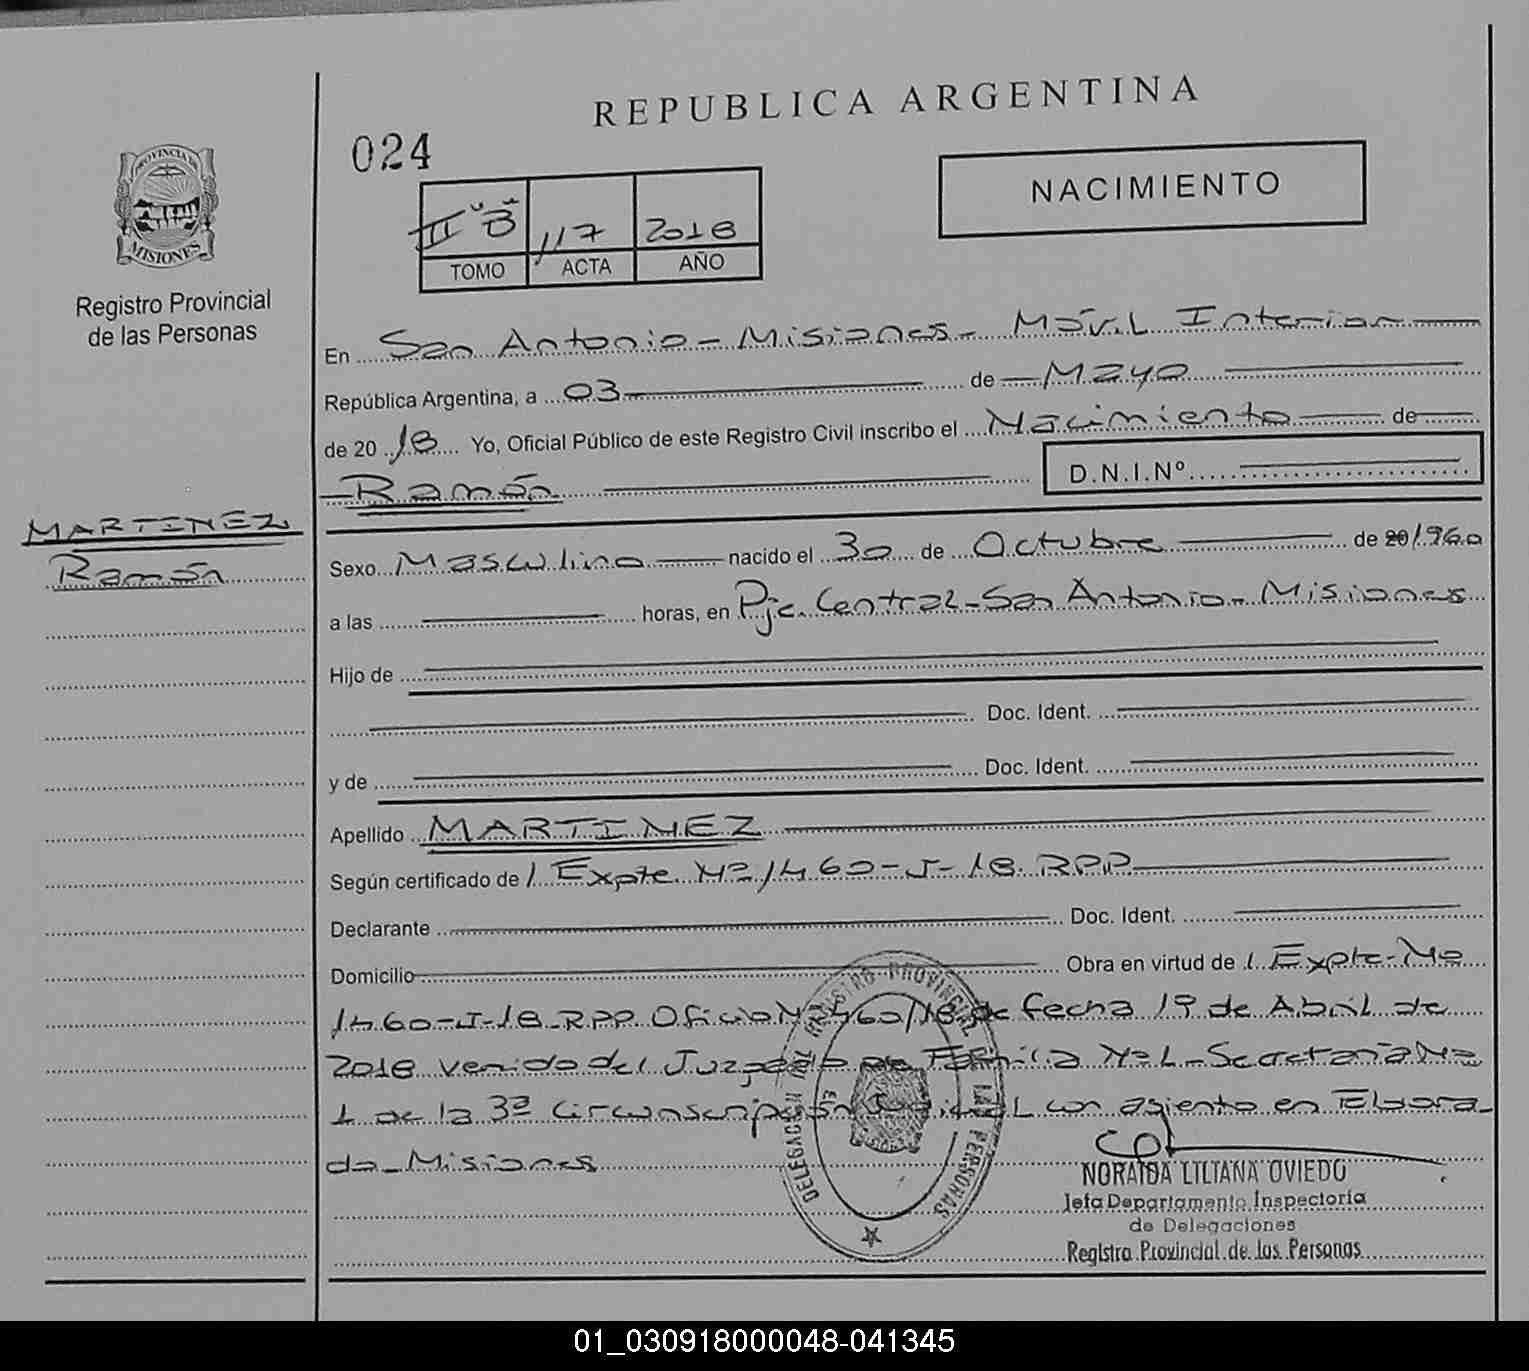 REPUBLICA ARGENTINA
024
NACIMIENTO
II "B" 117 2018
TOMO ACTA AÑO
PROVINCIA DE
MISIONES
Registro Provincial
de las Personas
En San Antonio - Misiones - Móvil Interior
República Argentina, a 03 de Mayo
de 2018 Yo, Oficial Público de este Registro Civil inscribo el Nacimiento de
Ramón D.N.I.Nº
MARTINEZ
Ramón
Sexo Masculino nacido el 30 de Octubre de 20/1960
a las horas, en Pje. Central - San Antonio - Misiones
Hijo de
Doc. Ident.
y de Doc. Ident.
Apellido MARTINEZ
Según certificado de / Expte. Nº 1460-J-18 RPP
Declarante Doc. Ident.
Domicilio Obra en virtud de / Expte. Nº
1460-J-18 RPP Oficio Nº 460/18 de fecha 19 de Abril de
2018 venido del Juzgado de Familia Nº 1 - Secretaría Nº
1 de la 3ª Circunscripción Judicial con asiento en Eldora-
do - Misiones
DELEGACION REGISTRO PROVINCIAL DE LAS PERSONAS
NORAIDA LILIANA OVIEDO
Jefa Departamento Inspectoría
de Delegaciones
Registro Provincial de las Personas
01_030918000048-041345